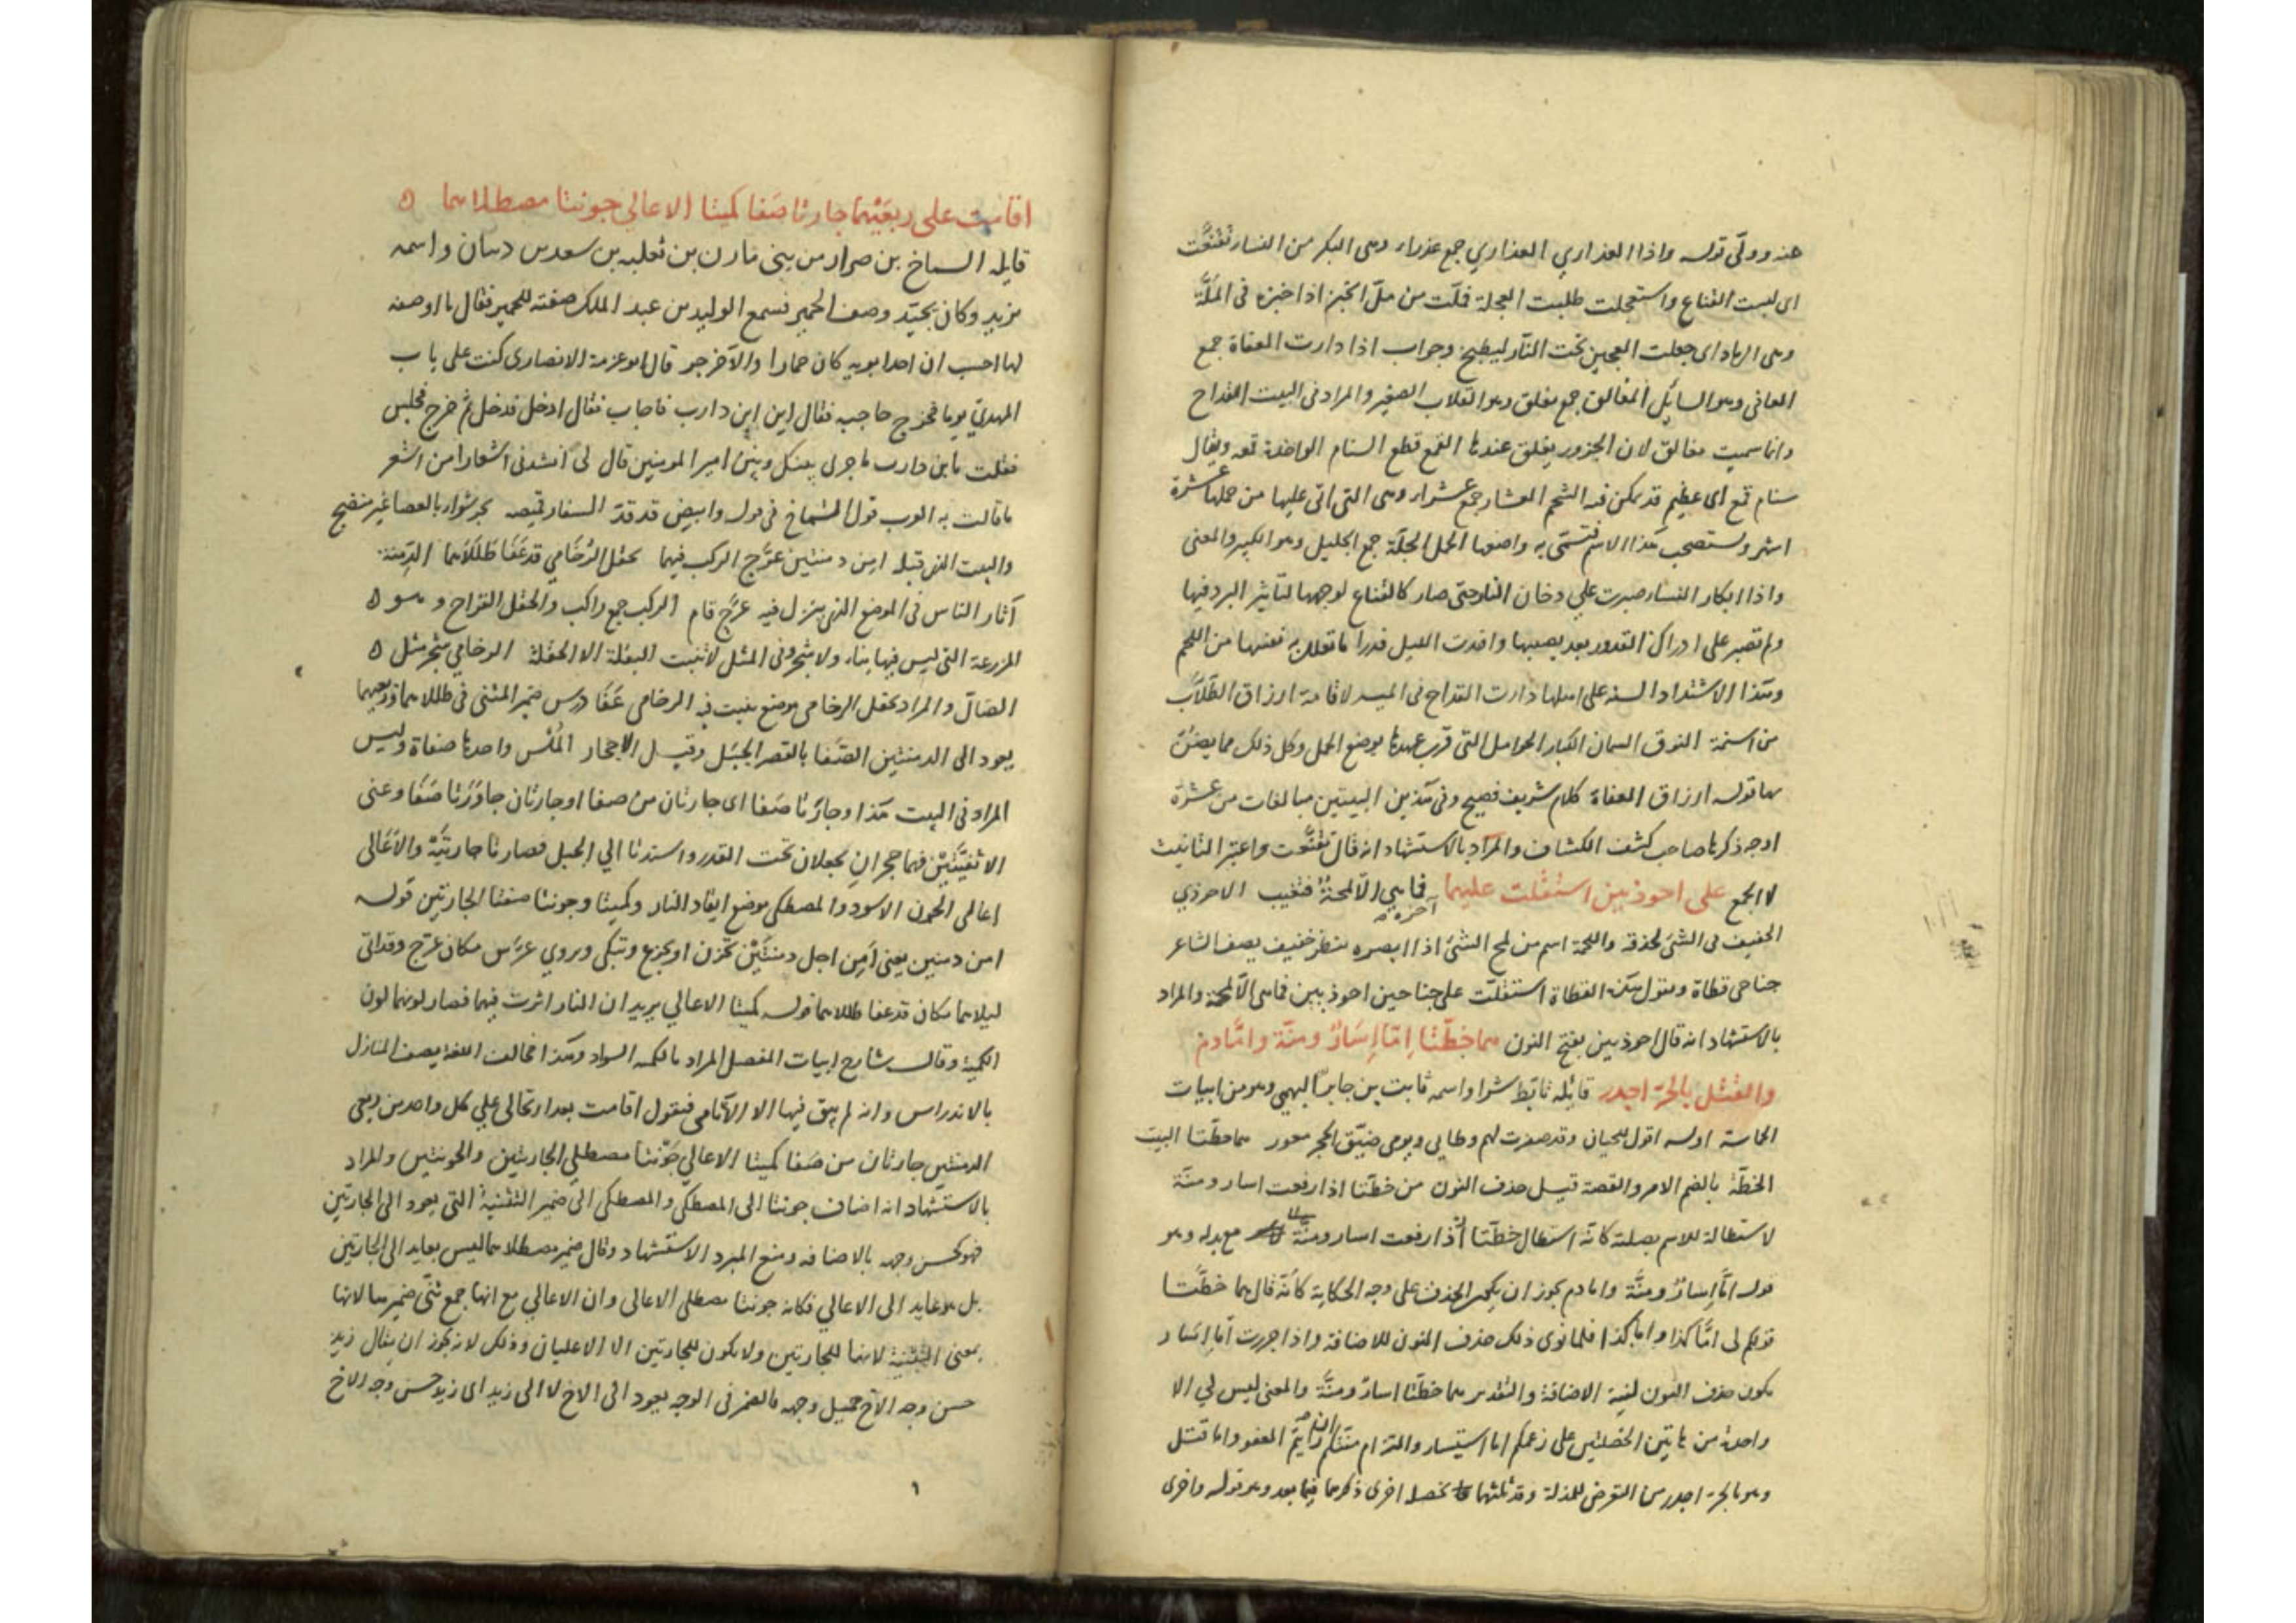 عنه وولّى قوله واذا العذارى العذارى جمع عذراء وهى البكر من النساء تقنّعت
اى لبست القناع واستعجلت طلبت العجلة فملّت من ملّ الخبز اذا خبزه فى الملّة
وهى الرماد اى جعلت العجين تحت النار ليطبخ وجواب اذا دارت العفاة جمع
العافى وهو السايل المغالق جمع مغلق وهو القلاب الصغير والمراد فى البيت القداح
وانما سميت مغالق لان الجزور يغلق عندها القمع قطع السنام الواحدة قمعة ويقال
سنام قمع اى عظيم قد تمكن فيه الشحم العشار جمع عشراء وهى التى اتى عليها من حملها عشرة
اشهر ويستصحب هذا الاسم فتسمّى به واضعها الحمل الجلّة جمع الجليل وهو الكبير والمعنى
واذا ابكار النساء صبرت على دخان النار حتى صار كالقناع لوجهها لتأثير البرد فيها
ولم تصبر على ادراك القدور بعد نصبها واخذت الليل قدرا ما تعلل به نفسها من اللحم
وهذا الاشتداد السنة على اهلها دارت القداح فى الميسر لاقامة ارزاق الطلاب
من اسنمة النوق السمان الكبار الحوامل التى قرب عهدها بوضع الحمل وكل ذلك مما يضنّ
بها قوله ارزاق العفاة كلام شريف فصيح وفى هذين البيتين مبالغات من عشرة
اوجه ذكرها صاحب كشف الكشاف والمراد بالاستشهاد انه قال تقنّعت واعتبر التانيث
لا الجمع على احوذيين استقلت عليهما فما هى الّا لمحةٌ فتغيب الاحوذي
آخره
الخفيف فى الشئ لحذقه واللمحة اسم من لمح الشئ اذا ابصره بنظر خفيف يصف الشاعر
جناحى قطاة ويقول هذه القطاة استقلت على جناحين احوذيين فما هى الّا لمحة والمراد
بالاستشهاد انه قال احوذيين بفتح النون هما خطّتا اِمّا اِسَارٌ ومنّة وامّا دم
والقتل بالحرّ اجدر قائله تابّط شرا واسمه ثابت بن جابر الفهمى وهو من ابيات
الحماسة اوله اقول للحيان وقد صفرت لهم وطابى ويومى ضيّق الحجر معور هما خطّتا البيت
الخطّة بالضم الامر والقصة قيل حذف النون من خطّتا اذا رفعت اسار ومنّة
لاستطالة للاسم بصلته كانّه استطال خطّتا اذا رفعت اسار ومنّة مع بدله وهو
قوله امّا اِسارٌ ومنّة واما دم يجوز ان يكون الحذف على وجه الحكاية كانّه قال هما خطّتا
قولكم لى امّا كذا واما كذا فلما نوى ذلك حذف النون للاضافة واذا جررت امّا اسار
يكون حذف النون لنية الاضافة والتقدير هما خطّتا اسار ومنّة والمعنى ليس لي الا
واحدة من هاتين الخصلتين على زعمكم اما استيسار والتزام منتكم ان رايتم العفو واما قتل
وهو بالحرّ اجدر من التعرض للمذلة وقد ثلثهما بخصلة اخرى ذكرها فيما بعد وهو قوله واخرى
اقامت على ربعَيْهما جارتا صَفا كميتا الاعالي جونتا مصطلاهما
قايله الشماخ بن ضرار من بنى مازن بن ثعلبة بن سعد بن ذبيان واسمه
يزيد وكان يجيّد وصف الحمير فسمع الوليد بن عبد الملك صفته للحمير فقال ما اوصفه
لها احسب ان احد ابويه كان حمارا والآخر قال ابو عزمة الانصارى كنت على باب
المهديّ يوما فخرج حاجبه فقال اين ابن دارب فاجاب فقال ادخل فدخل ثم خرج فجلس
فقلت يا ابن دارب ما جرى بينك وبين امير المومنين قال لى انشدنى اشعارا من اشعر
ما قالت به العرب قول الشماخ فى قوله وابيض قد قدّ السفار قميصه يجر شواء بالعصا غير منضج
والبيت الذى قبله امن دمنتين عرّج الركب فيهما بحقل الرّخامى قد عَفَا طللاهما الدِّمنة
آثار الناس فى الموضع الذى ينزل فيه عرّج قام الركب جمع راكب والحقل القراح وهو
المزرعة التى ليس فيها بناء ولا شجر وفى المثل لا تنبت البقلة الا الحقلة الرخامى شجر مثل
الضال والمراد بحقل الرخامى موضع ينبت فيه الرخامى عَفَا درس ضمير المثنى فى طللاهما وربعيهما
يعود الى الدمنتين الصَّفا بالقصر الجبل وقيل الاحجار المُلْس واحدها صفاة وليس
المراد فى البيت هذا وجارتا صَفا اى جارتان من صفا او جارتان جاوَرَتا صَفًا وعنى
الاثفيَّتَيْن فهما حجرانِ يجعلان تحت القدر واسندتا الى الجبل فصارتا جارتَيْه والاَعَالى
اعالى الجون الاسود والمصطلى موضع ايقاد النار وكميتا وجونتا صفتا الجارتين قوله
امن دمنتين يعنى اَمِن اجل دمنتَيْن تحزن او تجزع وتبكى ويروى عرّس مكان عرّج وقد اتى
ليلاهما مكان قد عفا طللاهما قوله كميتا الاعالي يريد ان النار اثرت فيهما فصار لونهما لون
الكميت وقال شارح ابيات المفصل المراد بالكمتة السواد وهذا مخالف اللغة يصف المنازل
بالاندراس وانه لم يبق فيها الا الاَثافى فيقول اقامت بعد ارتحالى على كل واحد من ربعى
الدمنتين جارتان من صَفا كميتا الاعالي جَوْنتا مصطلى الجارتين والجونتين والمراد
بالاستشهاد انه اضاف جونتا الى المصطلى والمصطلى الى ضمير التثنية التى يعود الى الجارتين
فهو كحسن وجهه بالاضافه ومنع المبرد الاستشهاد وقال ضمير مصطلاهما ليس بعايد الى الجارتين
بل هو عايد الى الاعالي فكانه جونتا مصطلى الاعالى وان الاعالي مع انها جمع ثنّى ضميرها لانها
بمعنى التثنية لانها للجارتين ولا يكون للجارتين الا الاعليان وذلك لانه يجوز ان يقال زيد
حسن وجه الاَخ جميل وجهه فالضمير فى الوجه يعود الى الاخ لا الى زيد اى زيد حسن وجه الاخ